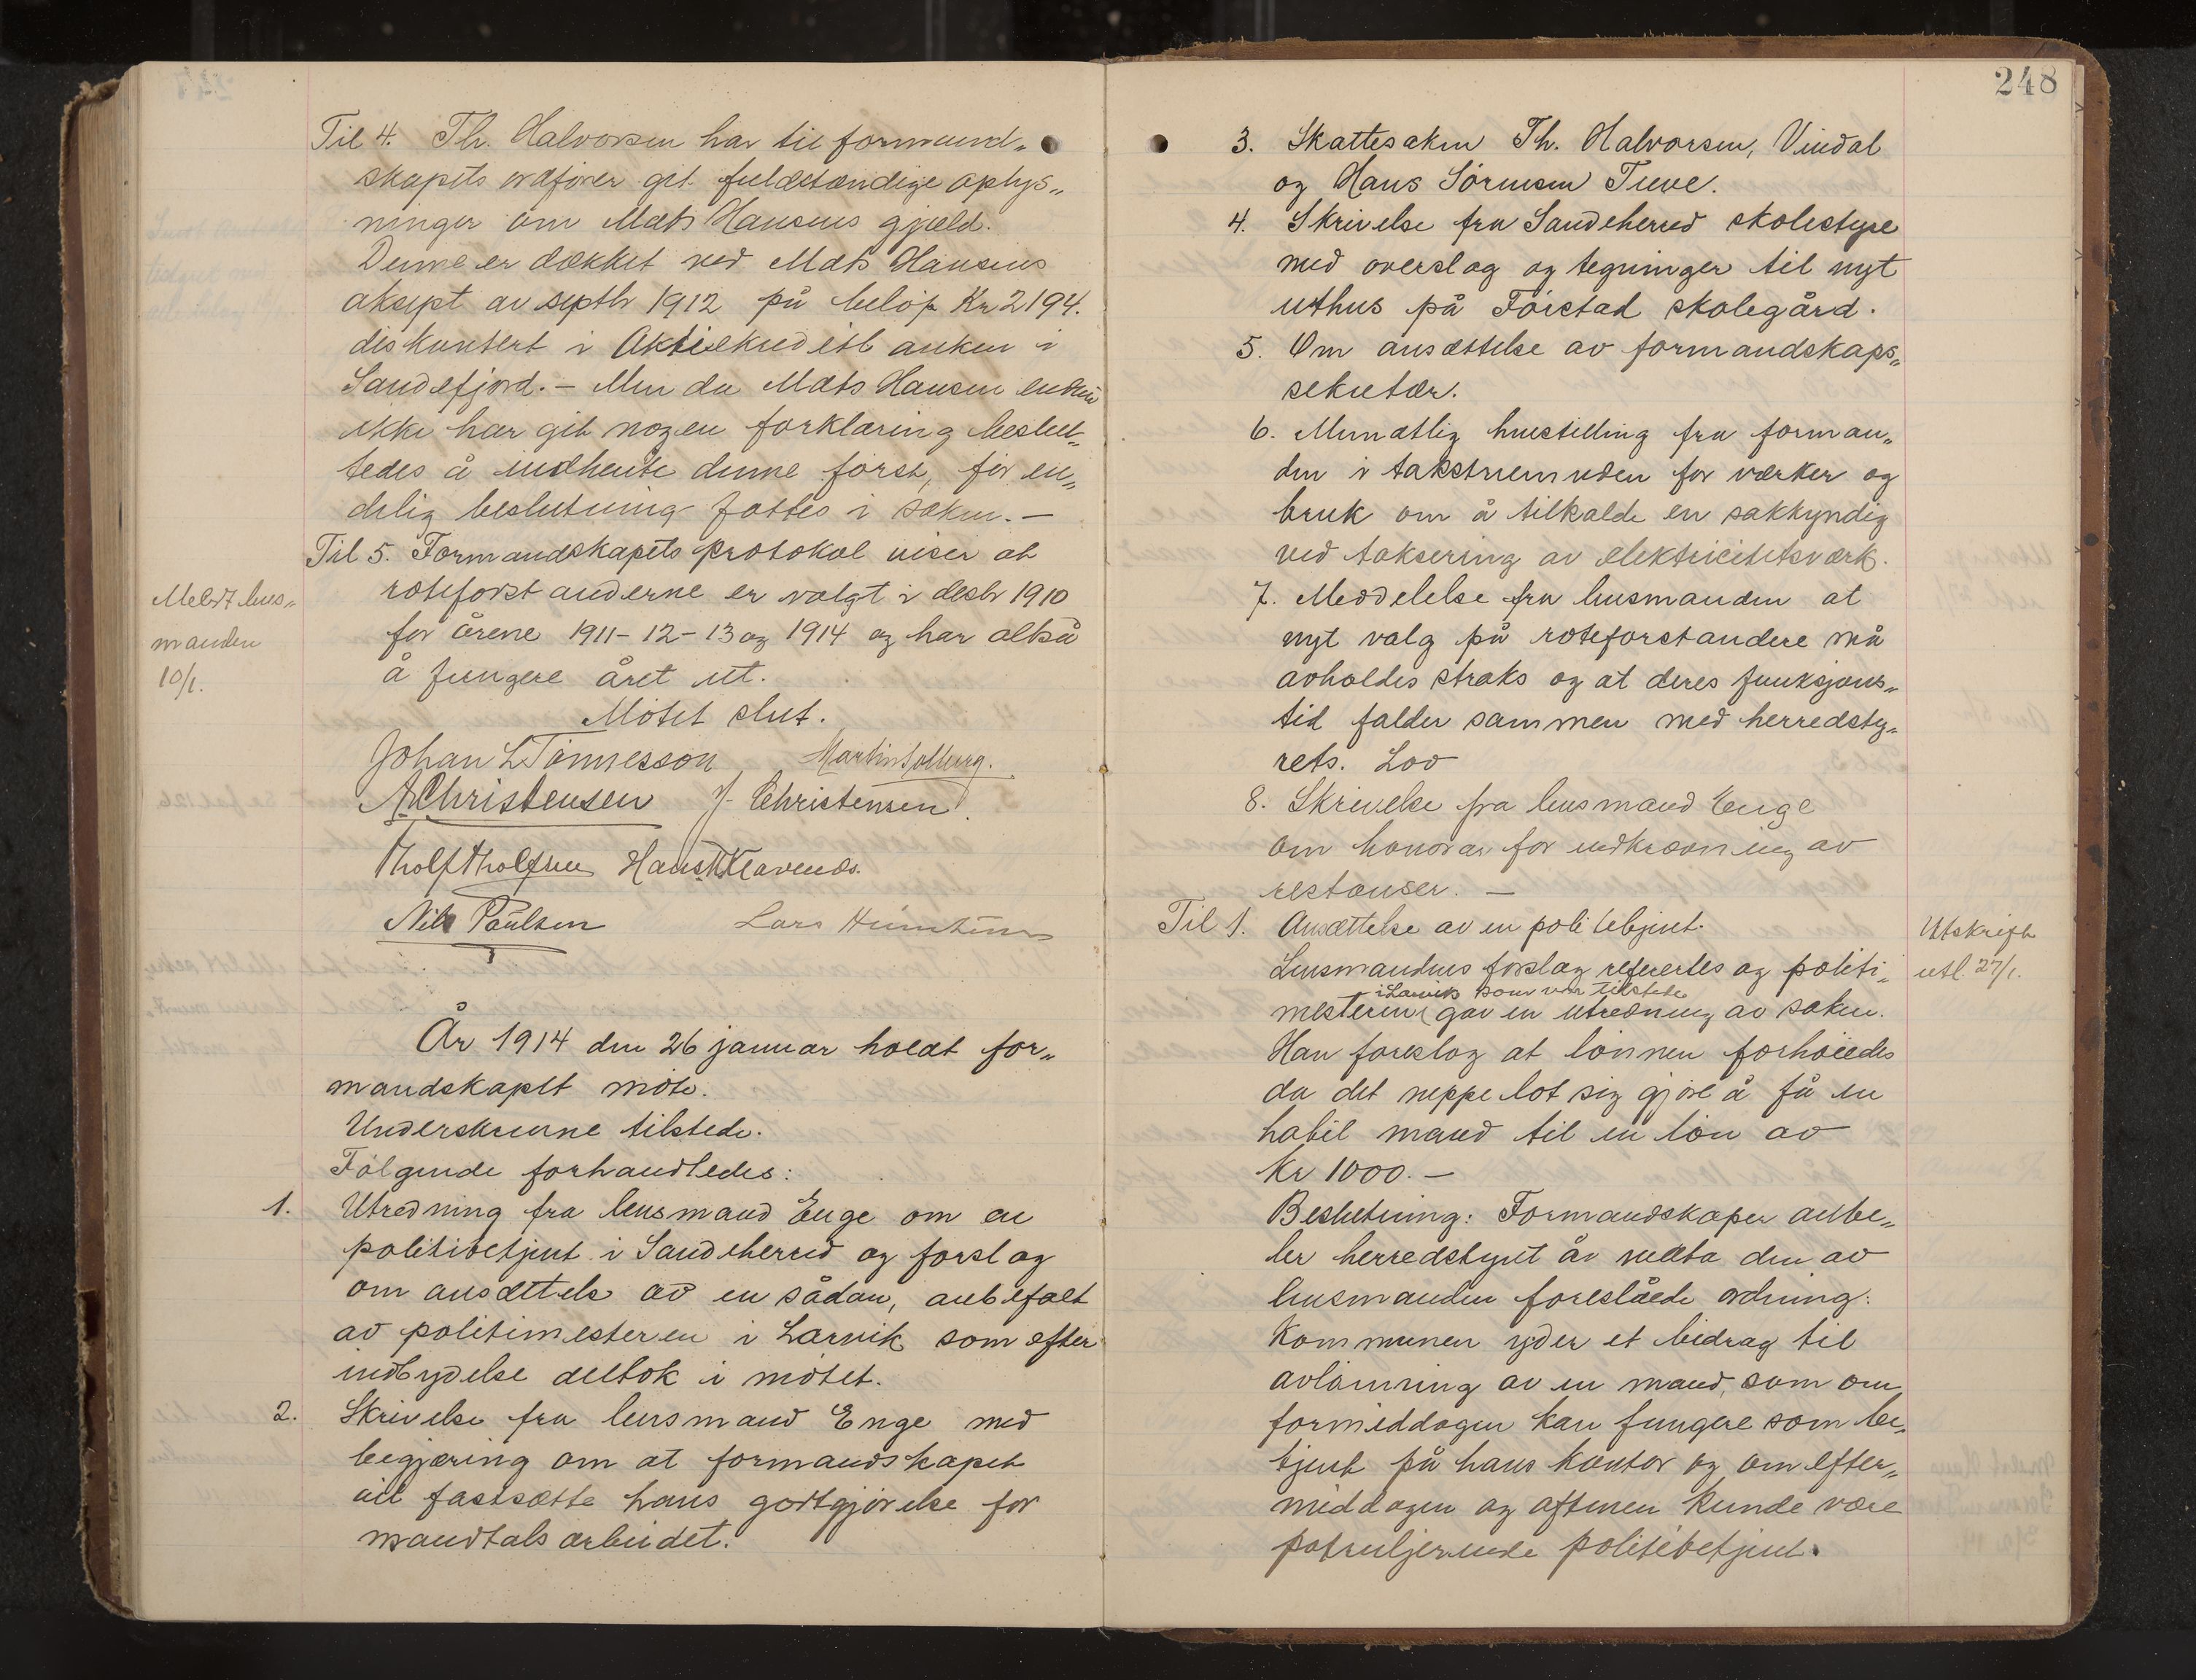 Til 4. Th. Halvorsen har til formand„
skapets ordfører git fuldstændige oplys„
ninger om Mats Hansens gjæld.
Denne er dækket ved Mats Hansens
aksept av septbr 1912 på beløp Kr 2194.
diskontert i Aktiekreditbanken i
Sandefjord. – Men da Mats Hansen endnu
ikke har git nogen forklaring beslut„
tedes å indhente denne først, før en„
delig beslutning fattes i saken. –
Til 5. Formandskapets protokol viser at
roteforstanderne er valgt i desbr 1910
for årene 1911-12-13 og 1914 og har altså
å fungere året ut.
Meddt lens„
manden
10/1.
Møtet slut.
Johan L Tønnesson Martin Solberg.
A. Christensen J. Christensen.
Tholf Tholfsen Hans K. Klavenæs.
Nils Paulsen Lars
År 1914 den 26 januar holdt for„
mandskapet møte.
Underskrevne tilstede.
Følgende forhandledes:
1. Utredning fra lensmand Enge om en
politibetjent i Sandeherred og forslag
om ansættelse av en sådan, anbefalt
av politimesteren i Larvik som efter
indbydelse deltok i møtet.
2. Skrivelse fra lensmand Enge med
begjæring om at formandskapet
vil fastsætte hans godtgjørelse for
mandtalsarbeidet.
248
3. Skattesaken Th. Halvorsen, Vindal
og Hans Sørensen Tuve.
4. Skrivelse fra Sandeherred skolestyre
med overslag og tegninger til nyt
uthus på Førstad skolegård.
5. Om ansættelse av formandskaps„
sekretær.
6. Mundtlig henstilling fra forman„
den i takstnemnden for værker og
bruk om å tilkalde en sakkyndig
ved taksering av elektricitetsværk.
7. Meddelelse fra lensmanden at
nyt valg på roteforstandere må
avholdes straks og at deres funksjons„
tid falder sammen med herredsty„
rets. Lov
8. Skrivelse fra lensmand Enge
om honorar for indkrævning av
restanser. –
Til 1. Ansættelse av en politibetjent.
Utskrift
utl. 27/1.
Lensmandens forslag refertes og politi„
i Larvik som var tilstede
mesteren gav en utredning av saken.
Han foreslog at lønnen forhøiedes
da det neppe lot sig gjøre å få en
habil mand til en løn av
Kr 1000. –
Beslutning: Formandskapet anbe„
ler herredstyret å vedta den av
lensmanden foreslåede ordning:
Kommunen yder et bidrag til
avlønning av en mand, som om
formiddagen kan fungere som be„
tjent på hans kontor og om efter„
middagen og aftenen kunde være
patruljerende politibetjent.